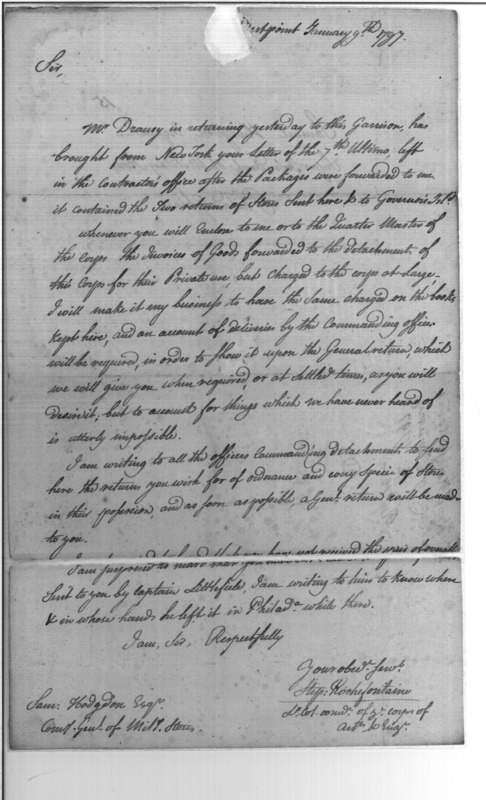 Westpoint January 9th 1797.
Sir,
Mr. Dransy in returning yesterday to this Garrison, has
brought from New York your Letter of the 7th Ultimo, left
in the Contractors office after the Packages were forwarded to me
it contained the Two returns of Stores Sent here & to Governors Isld.
whenever you will Enclose to me or to the Quarter Master of
the corps the Invoices of Goods forwarded to the detachments of
this Corps for their Private use, but Charged to the corps at Large
I will make it my business to have the Same charged on the books
Kept here, and an account of deliveries by the Commanding officer
will be required, in order to Show it upon the General return, which
we will give you when required, or at Settled times, as you will
desire it; but to account for things which we have never heard of
is utterly impossible.
I am writing to all the officers Commanding detachments to send
here the returns you wish for of ordnance and every Specie of Stores
in their possession and as soon as possible, a Genl. return will be made
to you.
I am surprised to heard that you have not received the
Sent to you by Captain Littlefield, I am writing to him to know where
& in whose hands he left it in Philada. while there.
I am, Sir, Respectfully
Your obedt. Servt.
Step: Rochefontaine
Lt. Col. comdt. of ye. corps of
Arts. & Engrs.
Sam: Hodgdon Esqr.
Comy. Genl. of Mility. Stores.